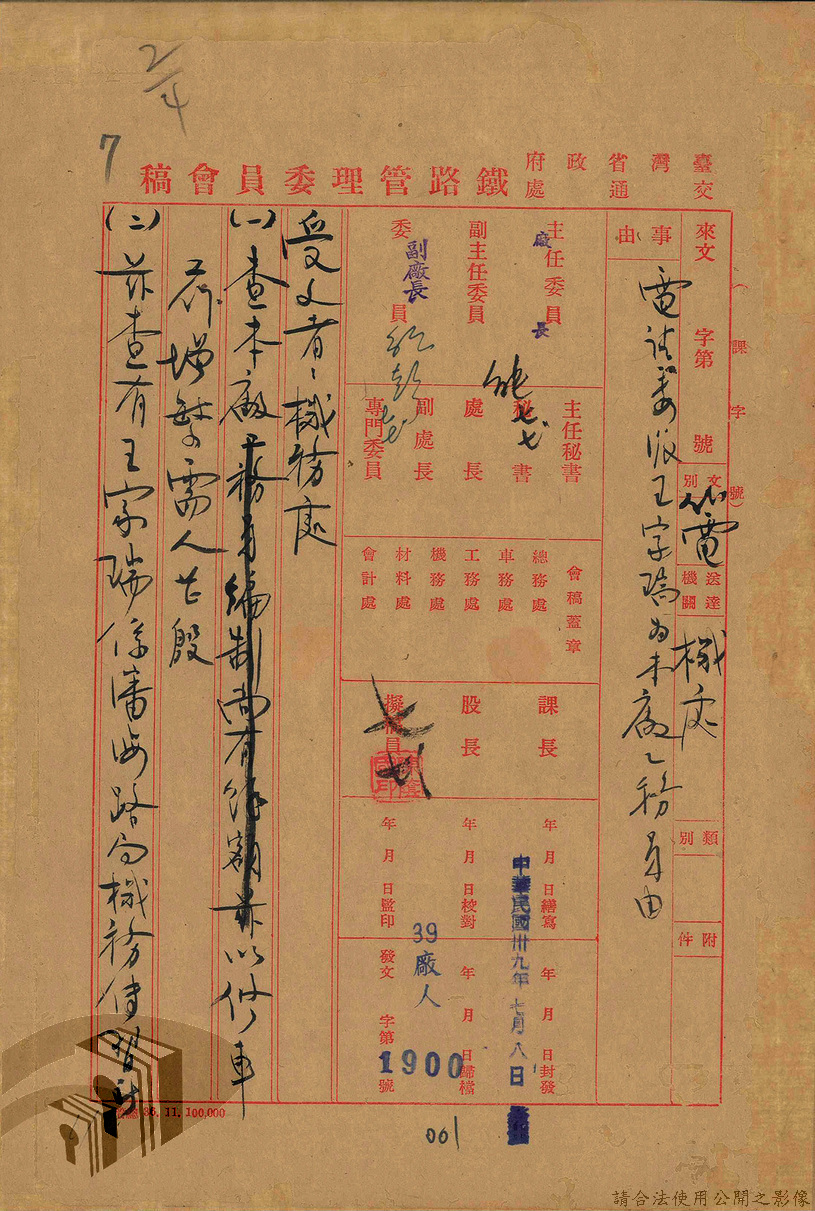 2/4
7
臺灣省政府
交通處
鐵路管理委員會稿
(課字號)
來文 字第 號
文別
代電
送達機關
機處
類別
附件
事由
電請委派王家瑞為本廠工務員由
主任委員
廠長
副主任委員
委員
副廠長
主任秘書
秘書
處長
副處長
專門委員
會稿蓋章
總務處
車務處
工務處
機務處
材料處
會計處
課長
股長
擬稿員
年 月 日繕寫
年 月 日校對
年 月 日監印
年 月 日封發
年 月 日歸檔
發文 字第 號
中華民國卅九年七月八日
39
廠人
1900
受文者:機務處
(一)查本廠工務員編制尚有餘額茲以修車
荷增繁需人甚殷
(二)茲查有王家瑞係
路局機務
36. 11. 100,000
001
請合法使用公開之影像